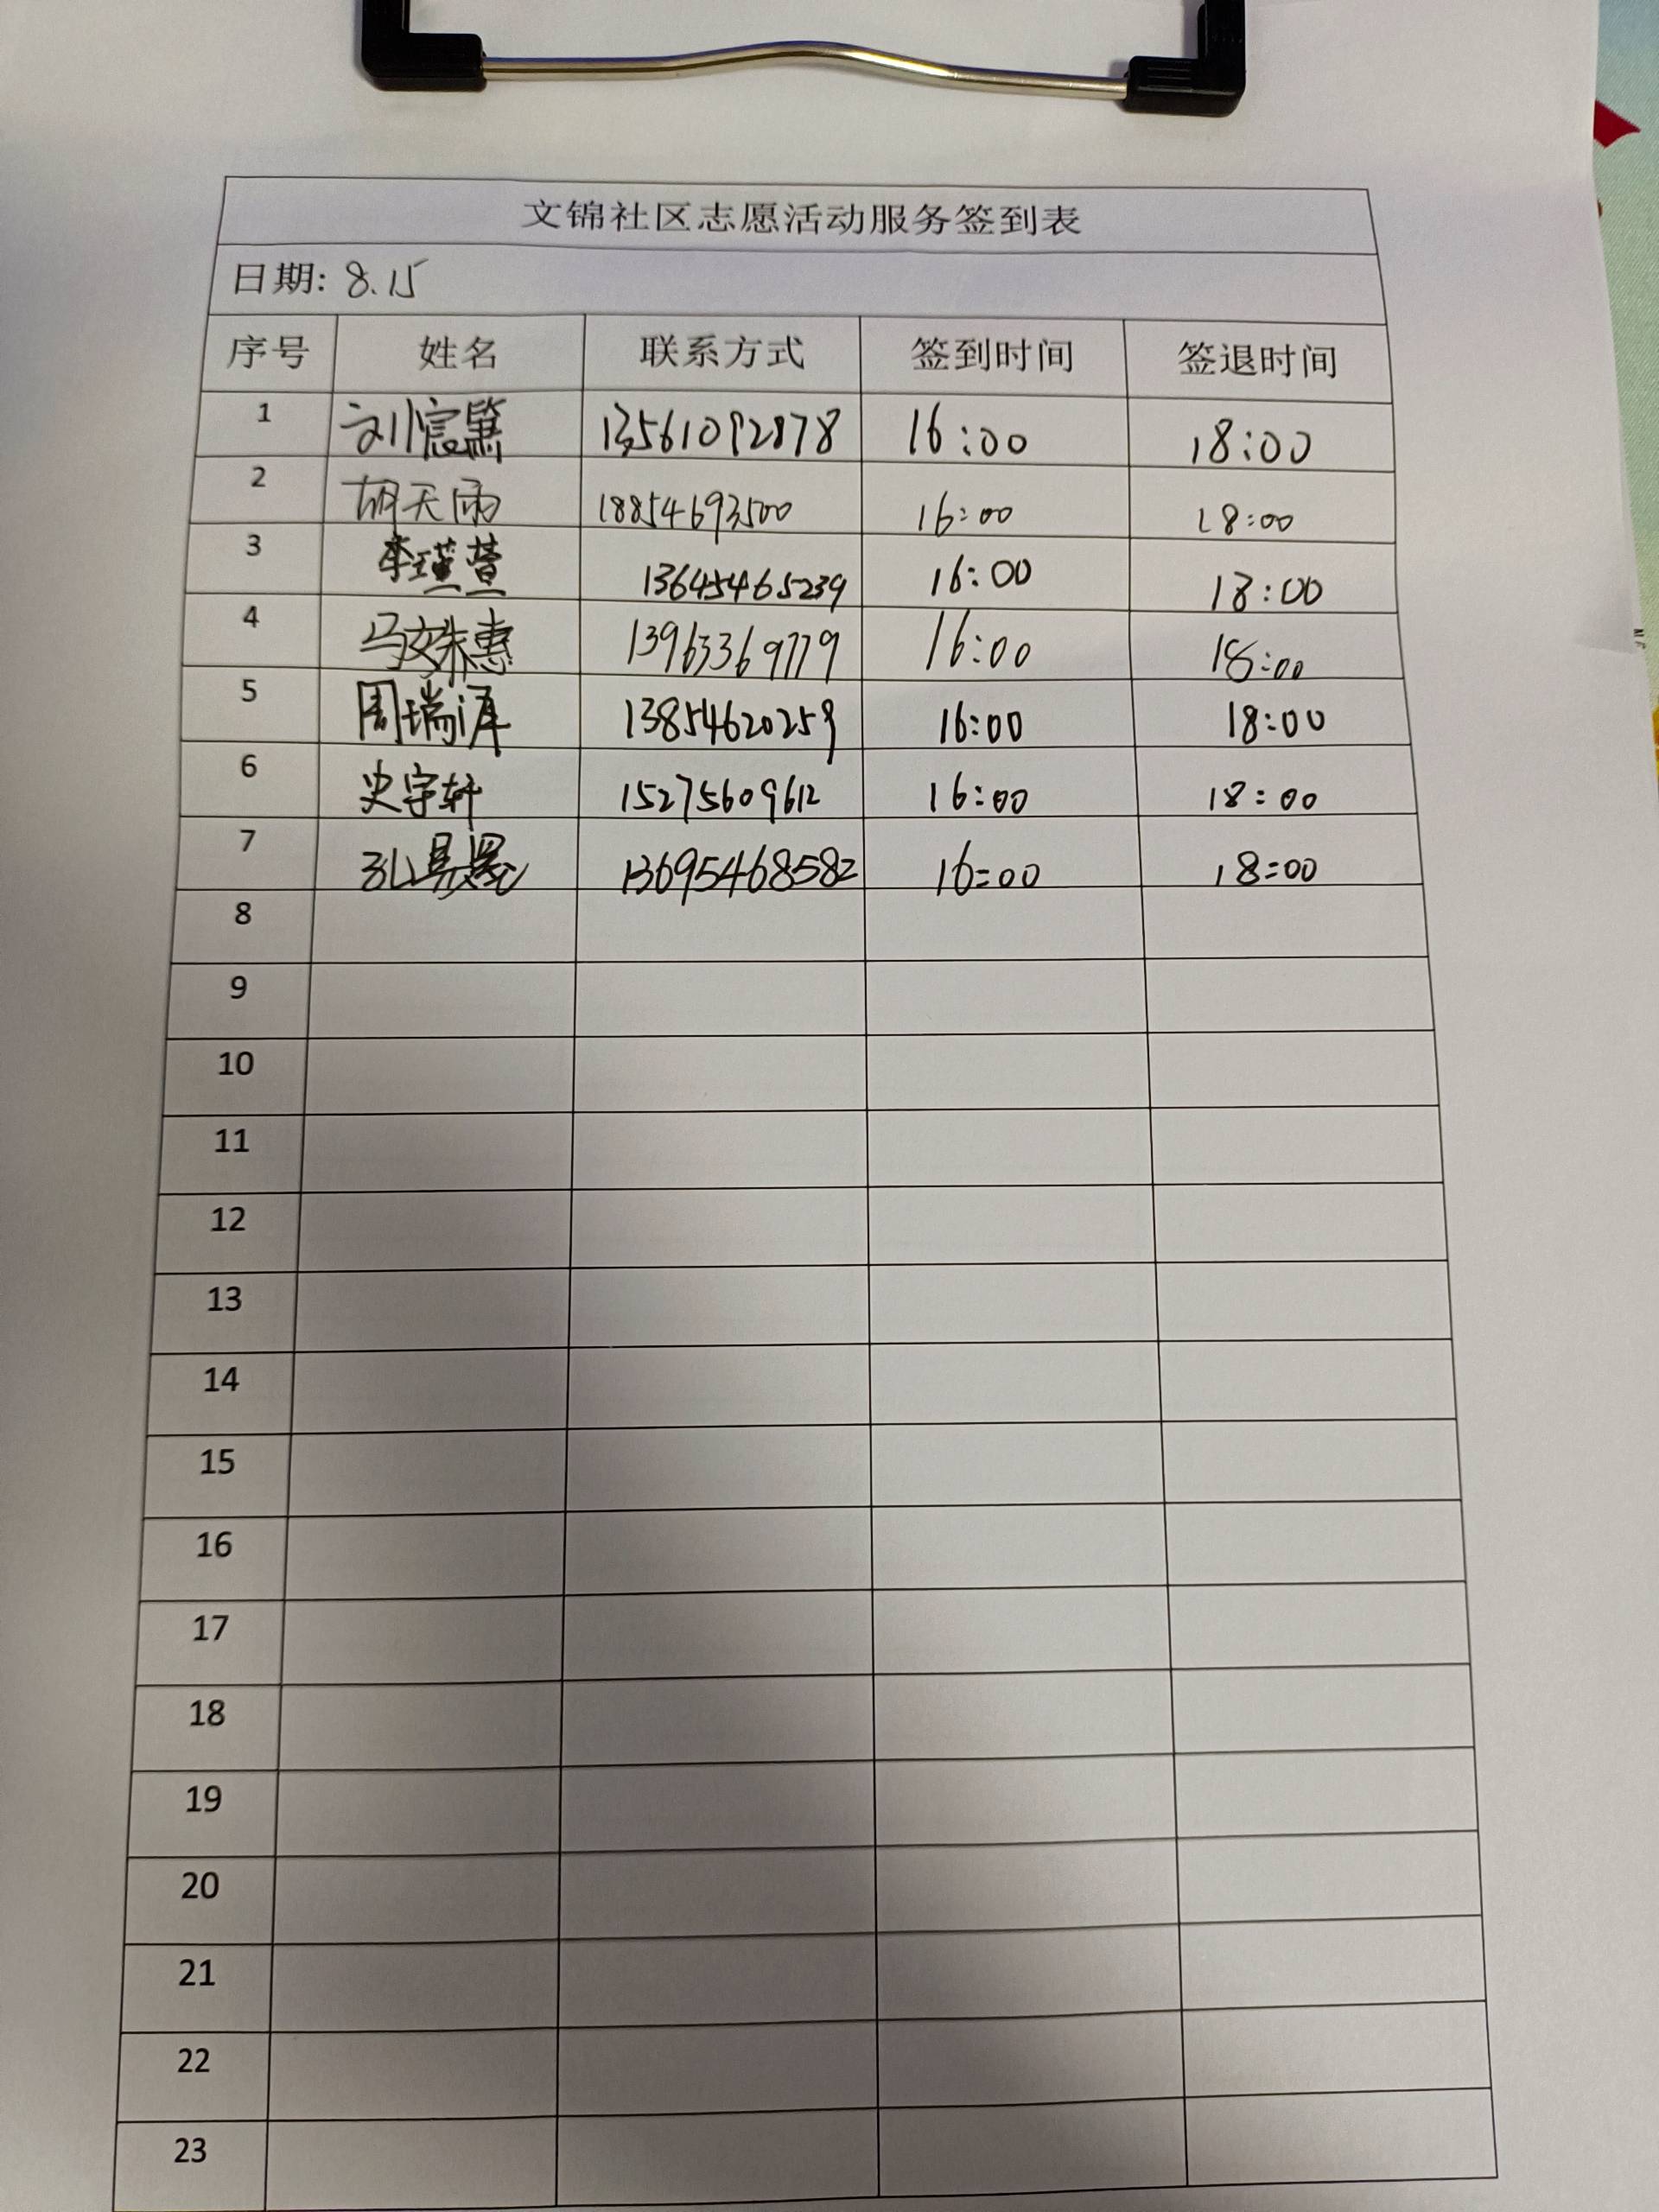 文锦社区志愿活动服务签到表
日期: 8.15
序号 姓名 联系方式 签到时间 签退时间
1 刘宸 13561092878 16:00 18:00
2 胡天雨 18854693500 16:00 18:00
3 李瑾萱 13645465239 16:00 18:00
4 马姝惠 13963369779 16:00 18:00
5 周瑞泽 13854620259 16:00 18:00
6 史宇轩 15275609612 16:00 18:00
7 孔 13695468582 16:00 18:00
8
9
10
11
12
13
14
15
16
17
18
19
20
21
22
23